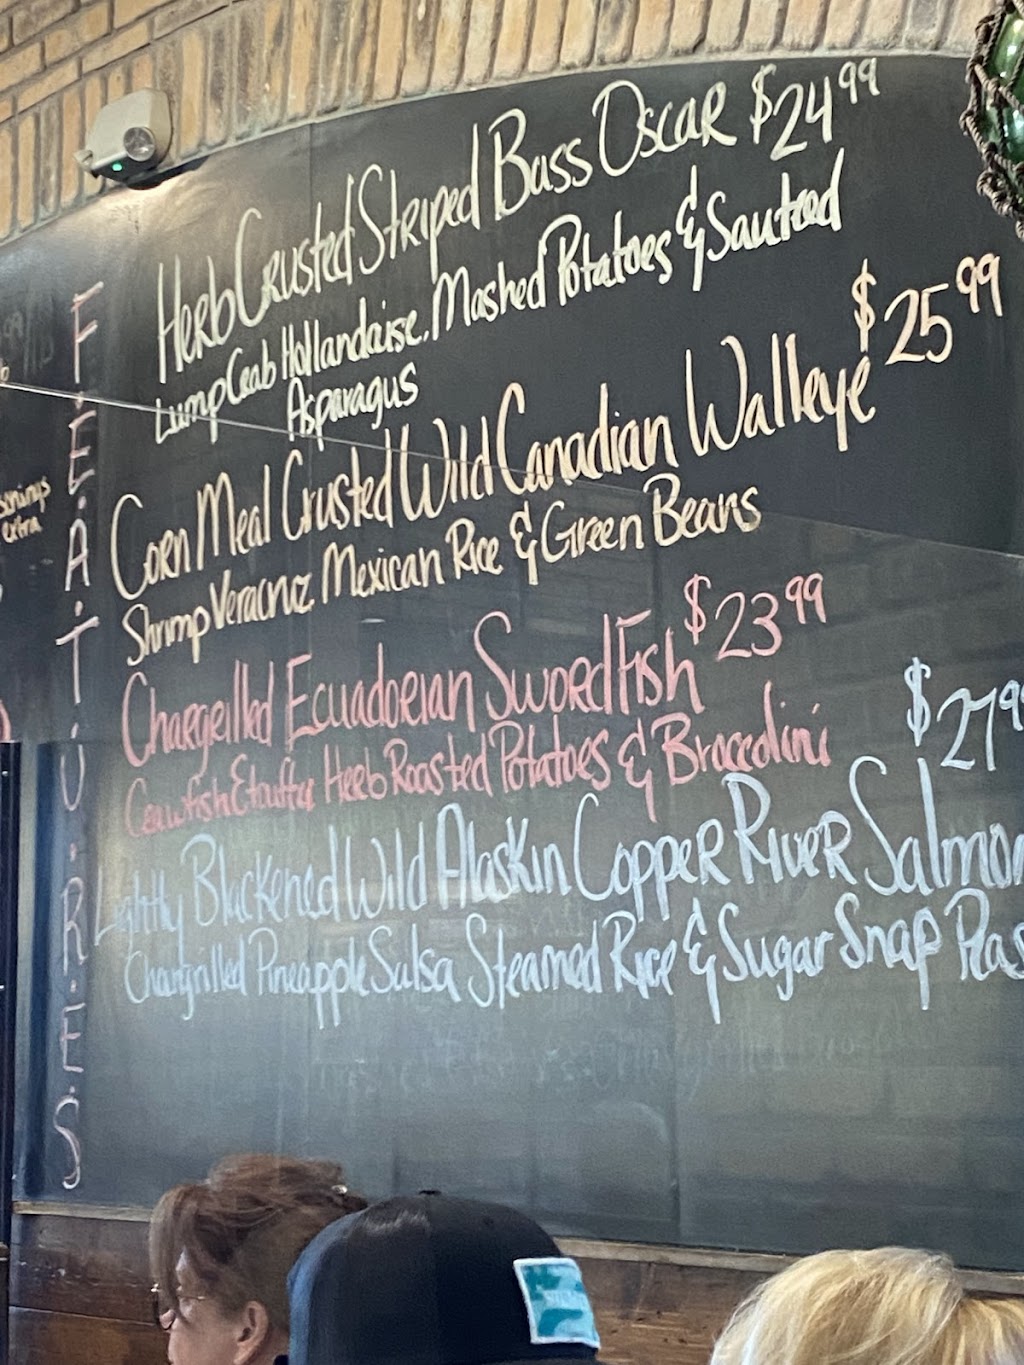 F.E.A.T.U.R.E.S
Herb Crusted Striped Bass Oscar $24 99
Lump Crab Hollandaise, Mashed Potatoes & Sauteed
Asparagus
Corn Meal Crusted Wild Canadian Walleye $25 99
Shrimp Veracruz Mexican Rice & Green Beans
Chargrilled Ecuadorian SwordFish $23 99
Crawfish Etouffee Herb Roasted Potatoes & Broccolini
$27 9
Lightly Blackened Wild Alaskin Copper River Salmon
Chargrilled Pineapple Salsa Steamed Rice & Sugar Snap Peas
extra